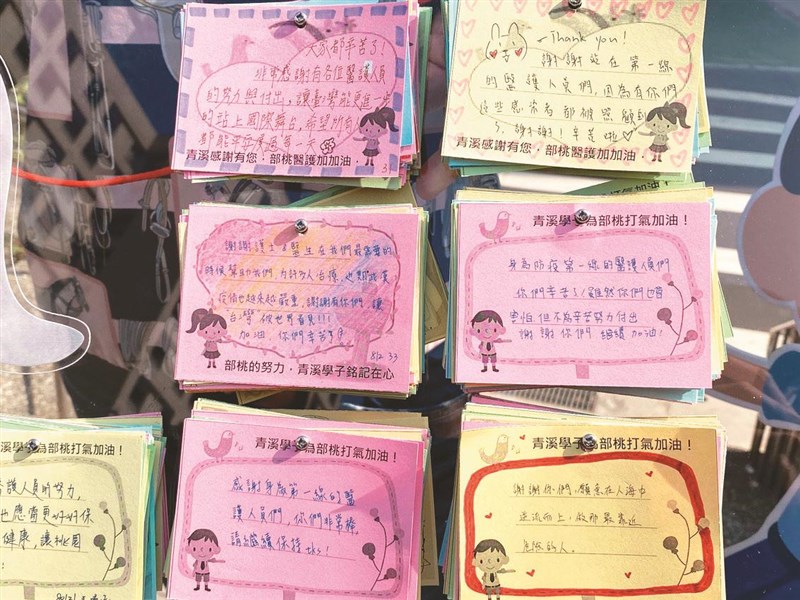 大家都辛苦了!
非常感謝有各位醫護人員
的努力與付出,讓臺灣能更進一步
的站上國際舞台,希望所有人
都能平安度過每一天
青溪感謝有您‧部桃醫護加加油‧
~Thank you!
謝謝站在第一線
的醫護人員們,因為有你們
這些患者都被照顧到
謝謝!辛苦啦♡
青溪感謝有您‧部桃醫護加加油‧
謝謝護士、醫生在我們最需要的
時候幫助我們,為許多人治療,
疫情也越來越嚴重,謝謝有你們,讓
台灣被世界看見!!!
加油,你們辛苦了
812 33
部桃的努力‧青溪學子銘記在心
青溪學子為部桃打氣加油!
身為防疫第一線的醫護人員們
你們辛苦了!雖然你們也會
害怕,但不為辛苦努力付出
謝謝你們 繼續加油!
青溪學子為部桃打氣加油!
醫護人員的努力,
也應當更好好保
健康,讓桃園
青溪學子為部桃打氣加油!
感謝身處第一線的醫
護人員們,你們非常棒,
請繼續保持
青溪學子為部桃打氣加油!
謝謝你們,願意在人海中
逆流而上,做那最靠近
危險的人。